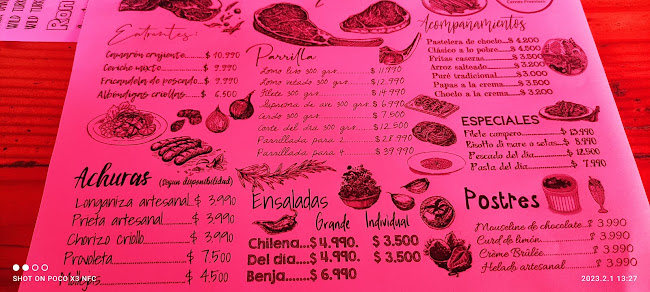 WILD TURK
WILD TUR
Ron
Carnes Premium
Entrantes:
Camarón crujiente $ 10.990
Ceviche mixto $ 9.990
Fricandela de pescado $ 9.990
Albóndigas criollas $ 6.500
Parrilla
Lomo liso 300 grs $ 11.990
Lomo vetado 300 grs $ 12.990
Filete 300 grs $ 14.990
Suprema de ave 300 grs $ 6.990
Cerdo 300 grs $ 7.500
Corte del dia 300 grs $ 12.500
Parrillada para 2 $ 28.990
Parrillada para 4 $ 39.990
Acompañamientos
Pastelera de choclo $ 4.200
Clásico a lo pobre $ 4.500
Fritas caseras $ 3.500
Arroz salteado $ 3.200
Puré tradicional $ 3.000
Papas a la crema $ 3.500
Choclo a la crema $ 3.200
ESPECIALES
Filete campero $ 13.990
Risotto di mare o setas $ 8.990
Pescado del dia $ 12.500
Pasta del dia $ 7.990
Achuras (Segun disponibilidad)
Longaniza artesanal $ 3.990
Prieta artesanal $ 3.990
Chorizo criollo $ 3.990
Provoleta $ 7.500
$ 4.500
Ensaladas
Grande Individual
Chilena...$ 4.990. $ 3.500
Del dia...$ 4.990. $ 3.500
Benja......$ 6.990
Postres
Mouseline de chocolate $ 3.990
Curd de limón $ 3.990
Crème Brûlée $ 3.990
Helado artesanal $ 3.990
SHOT ON POCO X3 NFC
2023.2.1 13:27